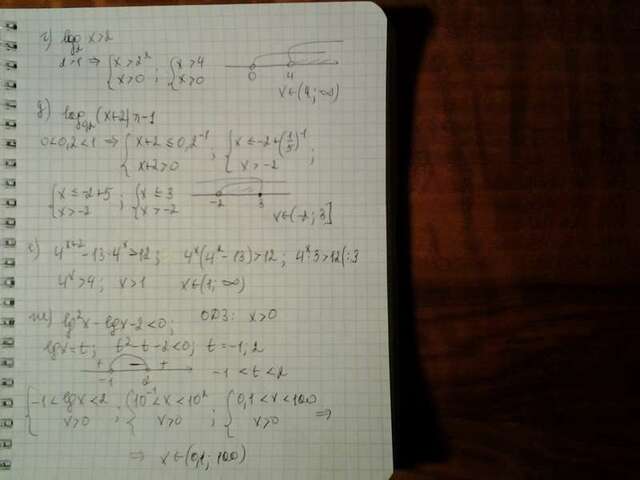 г) log₂ x>2
2>1 ⇒ {x>2²; x>0 ; {x>4; x>0   0   4
x∈(4; ∞)
д) log₀,₂(x+2)≥-1
0<0,2<1 ⇒ {x+2≤0,2⁻¹; x+2>0 ; {x≤-2+(1/5)⁻¹; x>-2 ;
{x≤-2+5; x>-2 ; {x≤3; x>-2   -2   3
x∈(-2; 3]
е) 4ˣ⁺²-13·4ˣ>12; 4ˣ(4²-13)>12; 4ˣ·3>12|:3
4ˣ>4; x>1   x∈(1; ∞)
ж) lg²x-lgx-2<0;   ОДЗ: x>0
lgx=t; t²-t-2<0; t=-1, 2
+ - +   -1   2   -1<t<2
{-1<lgx<2; x>0 ; {10⁻¹<x<10²; x>0 ; {0,1<x<100; x>0 ⇒
⇒ x∈(0,1; 100)